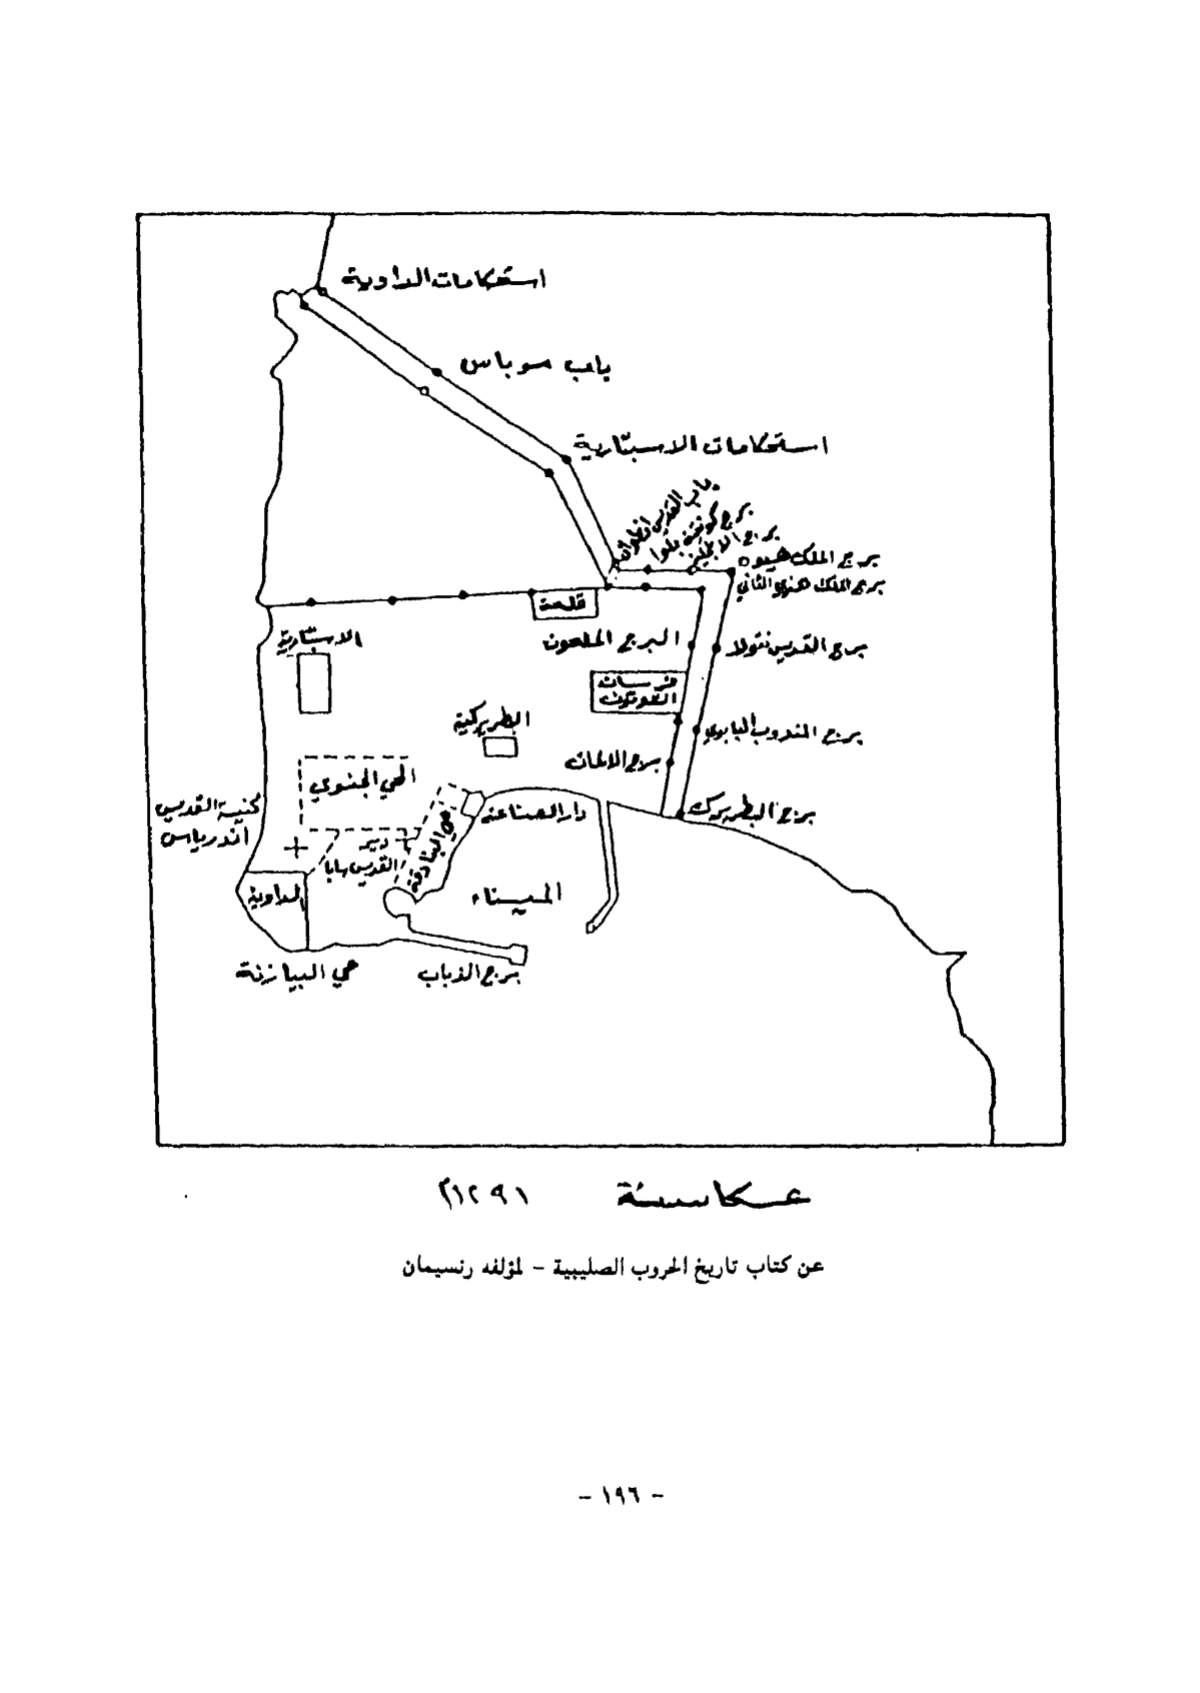 استحكامات الداوية
باب موباس
استحكامات الاسبتارية
باب القديس انطوان
برج كونتة بلوا
برج الانجليز
برج الملك هيو
برج الملك هنري الثاني
قلعة
الاسبتارية
البرج الملعون
برج القديس نقولا
فرسان
التيوتون
البطريركية
برج المندوب البابوي
برج الالمان
الحي الجنوي
كنيسة القديس
اندرياس
دار الصناعة
برج البطريرك
حي البنادقة
دير
القديس سابا
الداوية
الميناء
حي البيازنة
برج الذباب
عكا سنة ١٢٩١م
عن كتاب تاريخ الحروب الصليبية – لمؤلفه رنسيمان
– ١٩٦ –